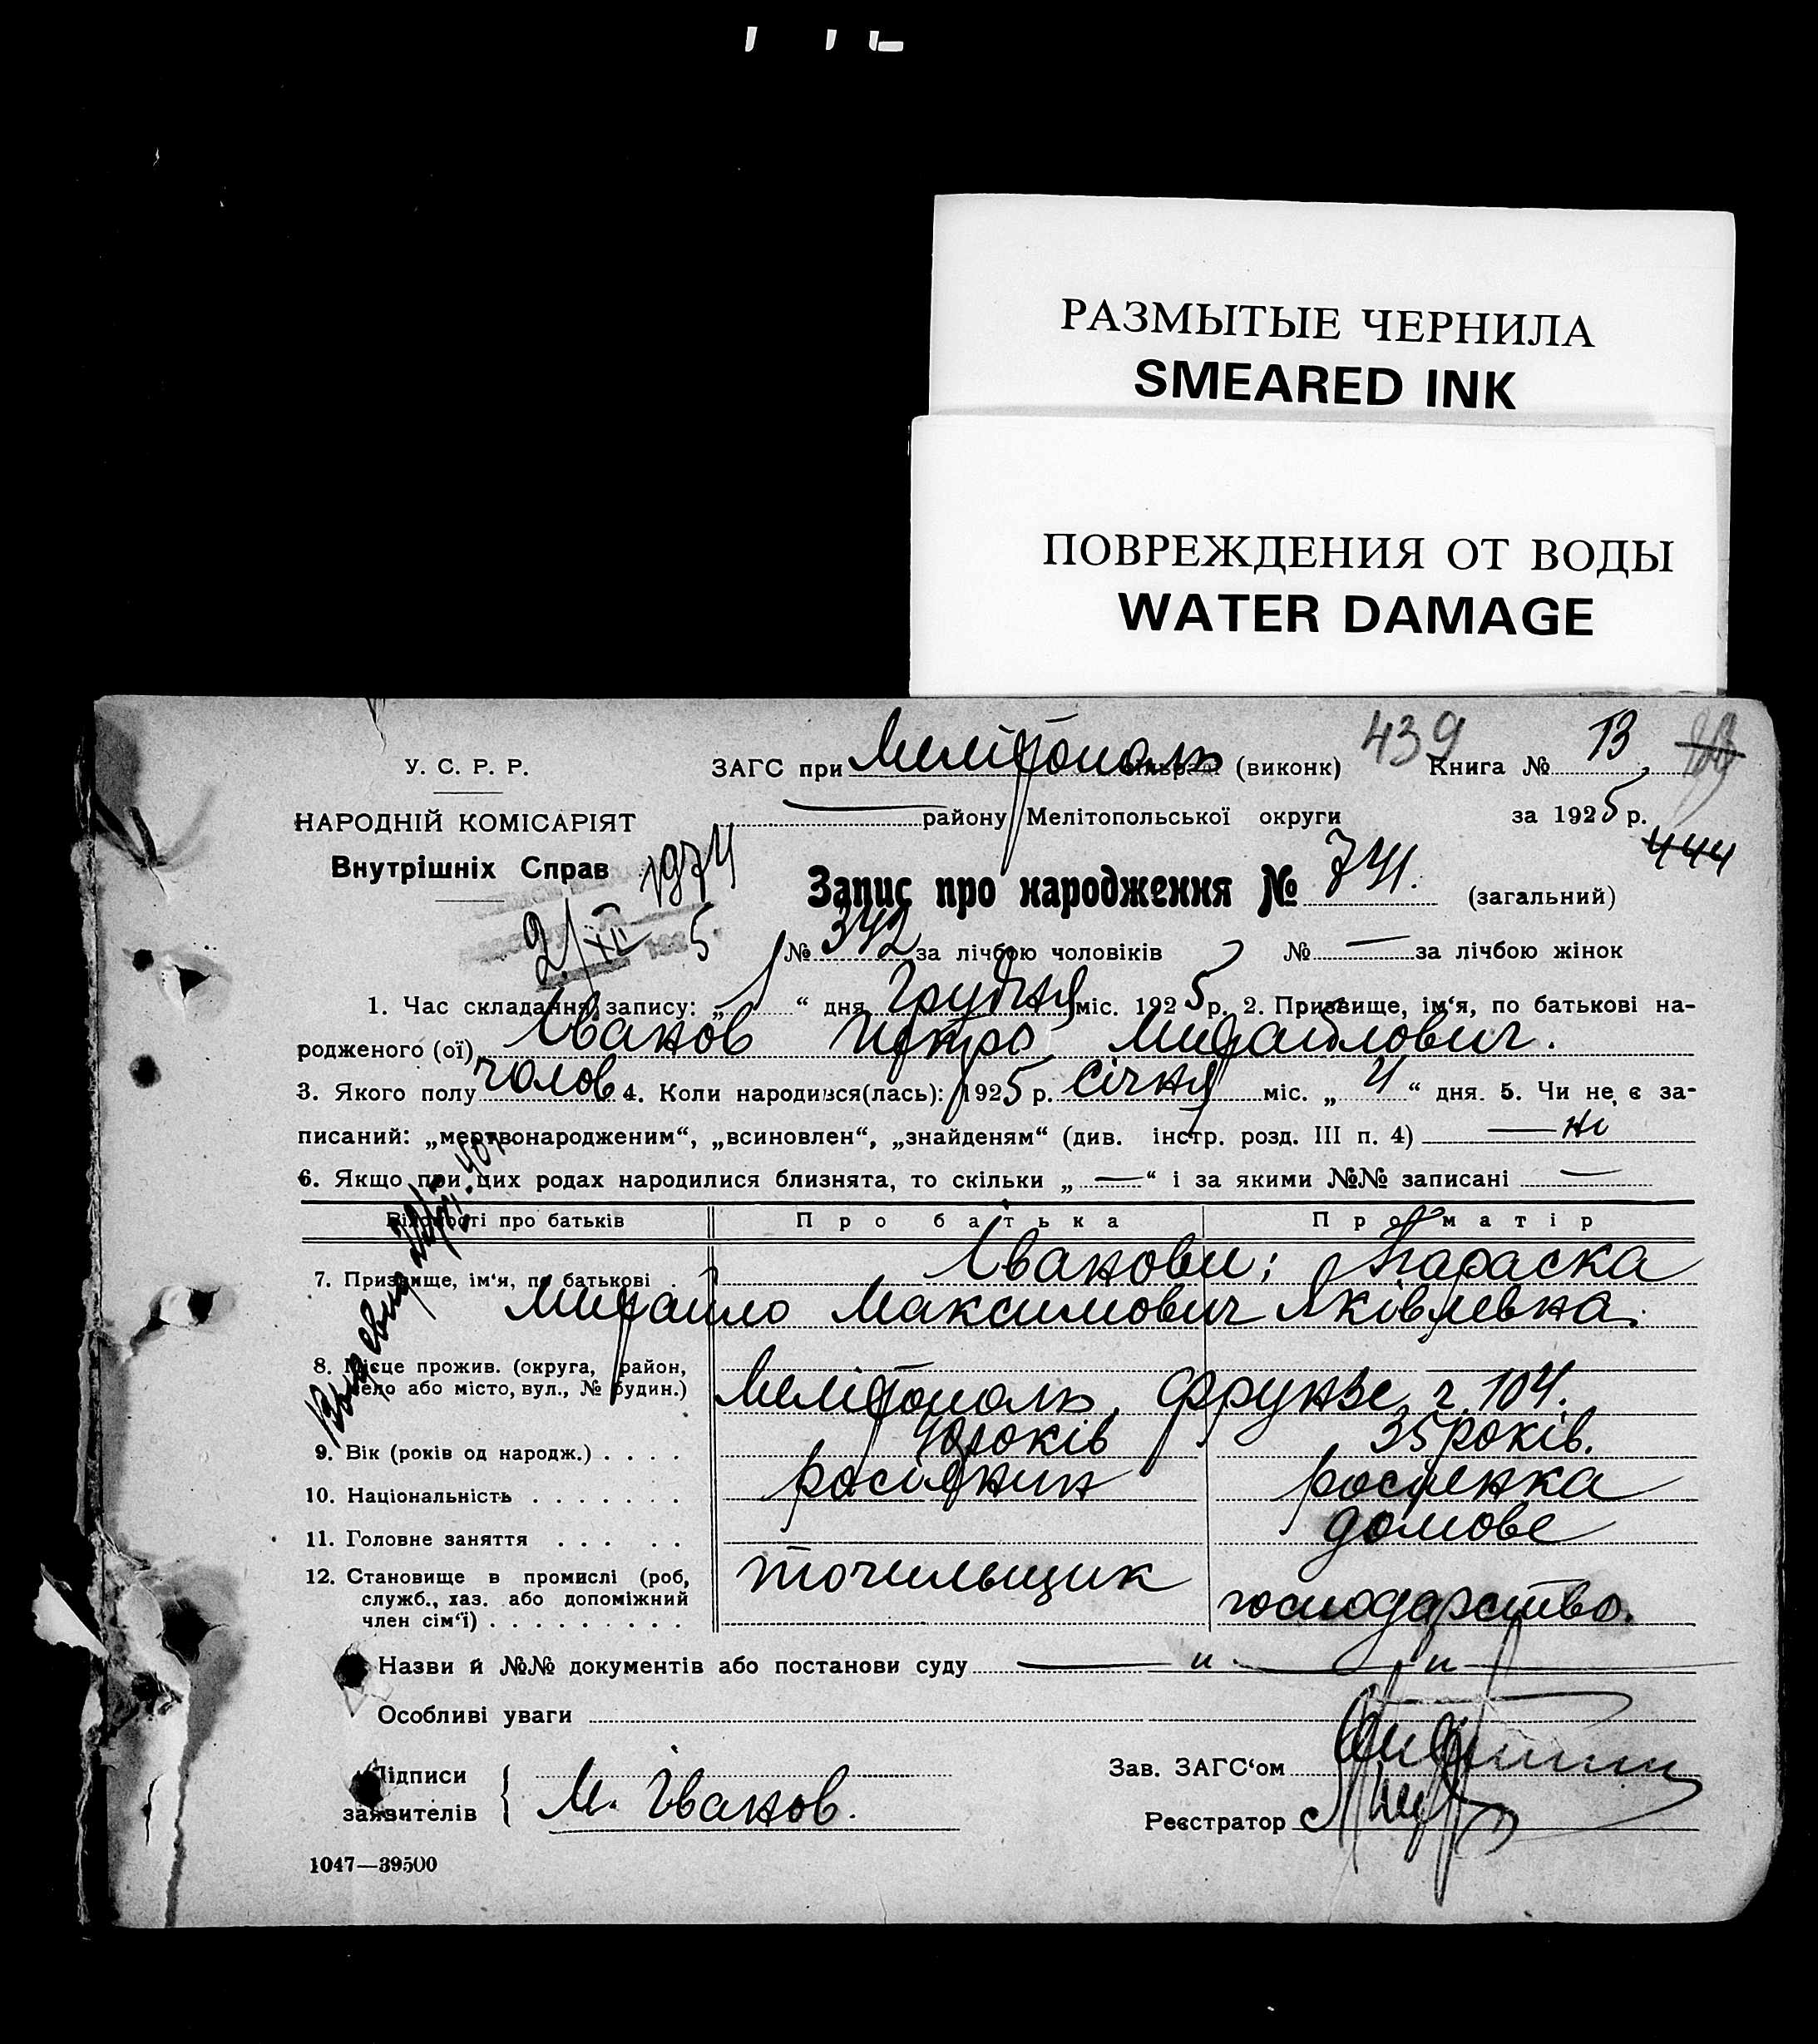 РАЗМЫТЫЕ ЧЕРНИЛА
SMEARED INK
ПОВРЕЖДЕНИЯ ОТ ВОДЫ
WATER DAMAGE
439
У. С. Р. Р.
ЗАГС при Мелітополь (виконк) Книга № 13
НАРОДНІЙ КОМІСАРІЯТ
району Мелітопольської округи за 1925 р.
444
Внутрішніх Справ
1974
Запис про народження № 741. (загальний)
2/XII 5
№ 342 за лічбою чоловіків № — за лічбою жінок
1. Час складання запису: „ 1 “ дня Грудня міс. 1925 р. 2. Призвище, ім‘я, по батькові на-
родженого (ої) Іванов Петро Михайлович.
3. Якого полу чолов 4. Коли народився(лась): 1925 р. Січня міс. „ 4 “ дня. 5. Чи не є за-
писаний: „мертвонародженим“, „всиновлен“, „знайденям“ (див. інстр. розд. III п. 4) — ні
6. Якщо при цих родах народилися близнята, то скільки „ — “ і за якими №№ записані —
Відомості про батьків Про батька Про матір
7. Призвище, ім‘я, по батькові . Іванови; Параска
Михаило Максимович Яківлевна.
8. Місце прожив. (округа, район,
село або місто, вул., № будин.) Мелітополь, Фрунзе, ч. 104.
9. Вік (років од народж.) . . . . 40 років 35 років.
10. Національність . . . . . . . росіянин росіенка
11. Головне заняття . . . . . домове
12. Становище в промислі (роб, точильщик
служб., хаз. або допоміжний господарство.
член сім‘ї) . . . . . . . . .
Назви й №№ документів або постанови суду — " — " —
Особливі уваги
Підписи
заявителів { М. Іванов.
Зав. ЗАГС‘ом
Реєстратор
1047—39500